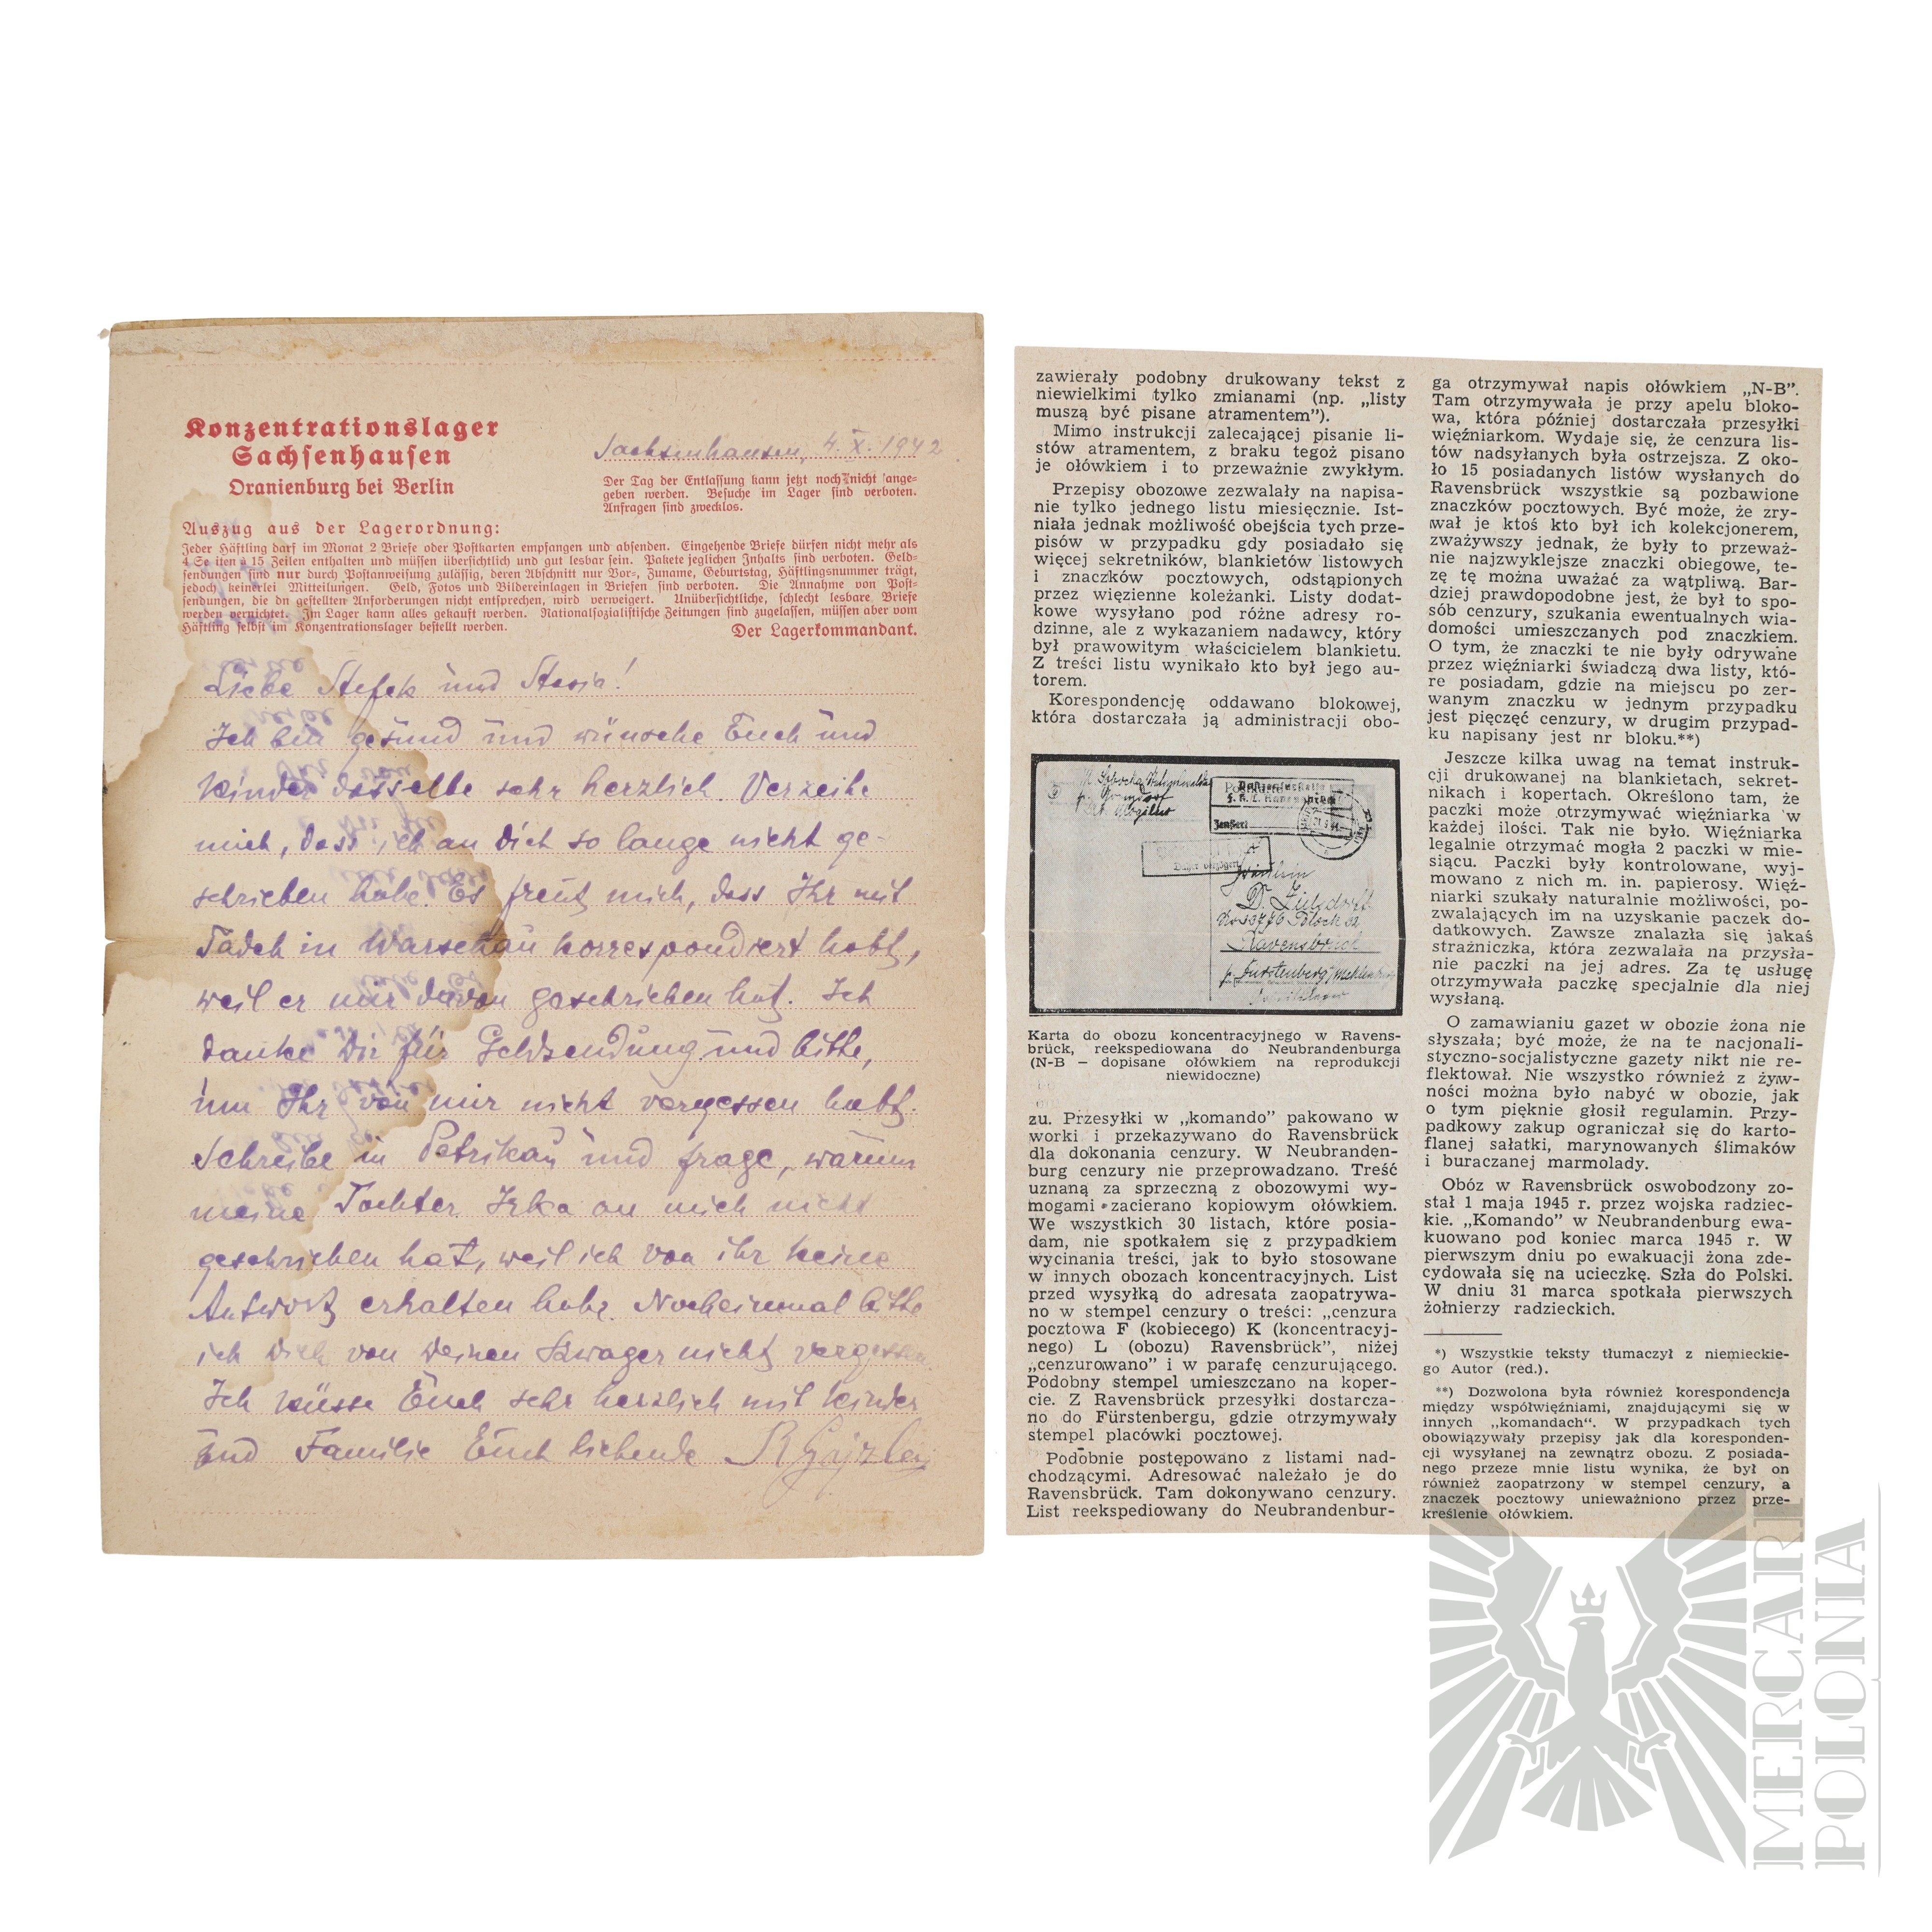 Konzentrationslager
Sachsenhausen
Oranienburg bei Berlin
Sachsenhausen, 4. X. 1942
Der Tag der Entlassung kann jetzt noch nicht ange-
geben werden. Besuche im Lager sind verboten.
Anfragen sind zwecklos.
Auszug aus der Lagerordnung:
Jeder Häftling darf im Monat 2 Briefe oder Postkarten empfangen und absenden. Eingehende Briefe dürfen nicht mehr als
4 Se iten à 15 Zeilen enthalten und müssen übersichtlich und gut lesbar sein. Pakete jeglichen Inhalts sind verboten. Geld-
sendungen sind nur durch Postanweisung zulässig, deren Abschnitt nur Vor-, Zuname, Geburtstag, Häftlingsnummer trägt,
jedoch keinerlei Mitteilungen. Geld, Fotos und Bildereinlagen in Briefen sind verboten. Die Annahme von Post-
sendungen, die dn gestellten Anforderungen nicht entsprechen, wird verweigert. Unübersichtliche, schlecht lesbare Briefe
werden vernichtet. Im Lager kann alles gekauft werden. Nationalsozialistische Zeitungen sind zugelassen, müssen aber vom
Häftling selbst im Konzentrationslager bestellt werden.
Der Lagerkommandant.
Liebe Stefek und Stasia!
Ich bin gesund und wünsche Euch und
Kinder dasselbe sehr herzlich. Verzeihe
mich, dass ich an Dich so lange nicht ge-
schrieben habe. Es freut mich, dass Ihr mit
Tadek in Warschau korrespondiert habt,
weil er mir davon geschrieben hat. Ich
danke Dir für Geldsendung und bitte,
Ihr von mir nicht vergessen habt.
Schreibe in Petrikau und frage, warum
meine Tochter Irka an mich nicht
geschrieben hat, weil ich von ihr keine
Antwort erhalten habe. Nocheinmal bitte
ich Dich von Deinen Swager nicht vergessen.
Ich küsse Euch sehr herzlich mit Kinder
und Familie Euch liebende
zawierały podobny drukowany tekst z
niewielkimi tylko zmianami (np. „listy
muszą być pisane atramentem”).
Mimo instrukcji zalecającej pisanie li-
stów atramentem, z braku tegoż pisano
je ołówkiem i to przeważnie zwykłym.
Przepisy obozowe zezwalały na napisa-
nie tylko jednego listu miesięcznie. Ist-
niała jednak możliwość obejścia tych prze-
pisów w przypadku gdy posiadało się
więcej sekretników, blankietów listowych
i znaczków pocztowych, odstąpionych
przez więzienne koleżanki. Listy dodat-
kowe wysyłano pod różne adresy ro-
dzinne, ale z wykazaniem nadawcy, który
był prawowitym właścicielem blankietu.
Z treści listu wynikało kto był jego au-
torem.
Korespondencję oddawano blokowej,
która dostarczała ją administracji obo-
Fräulein
Ravensbrück
Karta do obozu koncentracyjnego w Ravens-
brück, reekspediowana do Neubrandenburga
(N-B — dopisane ołówkiem na reprodukcji
niewidoczne)
zu. Przesyłki w „komando” pakowano w
worki i przekazywano do Ravensbrück
dla dokonania cenzury. W Neubranden-
burg cenzury nie przeprowadzano. Treść
uznaną za sprzeczną z obozowymi wy-
mogami zacierano kopiowym ołówkiem.
We wszystkich 30 listach, które posia-
dam, nie spotkałem się z przypadkiem
wycinania treści, jak to było stosowane
w innych obozach koncentracyjnych. List
przed wysyłką do adresata zaopatrywa-
no w stempel cenzury o treści: „cenzura
pocztowa F (kobiecego) K (koncentracyj-
nego) L (obozu) Ravensbrück”, niżej
„cenzurowano” i w parafę cenzurującego.
Podobny stempel umieszczano na koper-
cie. Z Ravensbrück przesyłki dostarcza-
no do Fürstenbergu, gdzie otrzymywały
stempel placówki pocztowej.
Podobnie postępowano z listami nad-
chodzącymi. Adresować należało je do
Ravensbrück. Tam dokonywano cenzury.
List reekspediowany do Neubrandenbur-
ga otrzymywał napis ołówkiem „N-B”.
Tam otrzymywała je przy apelu bloko-
wa, która później dostarczała przesyłki
więźniarkom. Wydaje się, że cenzura lis-
tów nadsyłanych była ostrzejsza. Z oko-
ło 15 posiadanych listów wysłanych do
Ravensbrück wszystkie są pozbawione
znaczków pocztowych. Być może, że zry-
wał je ktoś kto był ich kolekcjonerem,
zważywszy jednak, że były to przeważ-
nie najzwyklejsze znaczki obiegowe, te-
zę tę można uważać za wątpliwą. Bar-
dziej prawdopodobne jest, że był to spo-
sób cenzury, szukania ewentualnych wia-
domości umieszczanych pod znaczkiem.
O tym, że znaczki te nie były odrywane
przez więźniarki świadczą dwa listy, któ-
re posiadam, gdzie na miejscu po zer-
wanym znaczku w jednym przypadku
jest pięczęć cenzury, w drugim przypad-
ku napisany jest nr bloku.**)
Jeszcze kilka uwag na temat instruk-
cji drukowanej na blankietach, sekret-
nikach i kopertach. Określono tam, że
paczki może otrzymywać więźniarka w
każdej ilości. Tak nie było. Więźniarka
legalnie otrzymać mogła 2 paczki w mie-
siącu. Paczki były kontrolowane, wyj-
mowano z nich m. in. papierosy. Więź-
niarki szukały naturalnie możliwości, po-
zwalających im na uzyskanie paczek do-
datkowych. Zawsze znalazła się jakaś
strażniczka, która zezwalała na przysła-
nie paczki na jej adres. Za tę usługę
otrzymywała paczkę specjalnie dla niej
wysłaną.
O zamawianiu gazet w obozie żona nie
słyszała; być może, że na te nacjonali-
styczno-socjalistyczne gazety nikt nie re-
flektował. Nie wszystko również z żyw-
ności można było nabyć w obozie, jak
o tym pięknie głosił regulamin. Przy-
padkowy zakup ograniczał się do karto-
flanej sałatki, marynowanych ślimaków
i buraczanej marmolady.
Obóz w Ravensbrück oswobodzony zo-
stał 1 maja 1945 r. przez wojska radziec-
kie. „Komando” w Neubrandenburg ewa-
kuowano pod koniec marca 1945 r. W
pierwszym dniu po ewakuacji żona zde-
cydowała się na ucieczkę. Szła do Polski.
W dniu 31 marca spotkała pierwszych
żołnierzy radzieckich.
*) Wszystkie teksty tłumaczył z niemieckie-
go Autor (red.).
**) Dozwolona była również korespondencja
między współwięźniami, znajdującymi się w
innych „komandach”. W przypadkach tych
obowiązywały przepisy jak dla koresponden-
cji wysyłanej na zewnątrz obozu. Z posiada-
nego przeze mnie listu wynika, że był on
również zaopatrzony w stempel cenzury, a
znaczek pocztowy unieważniono przez prze-
kreślenie ołówkiem.
MERCARI
POLONIA